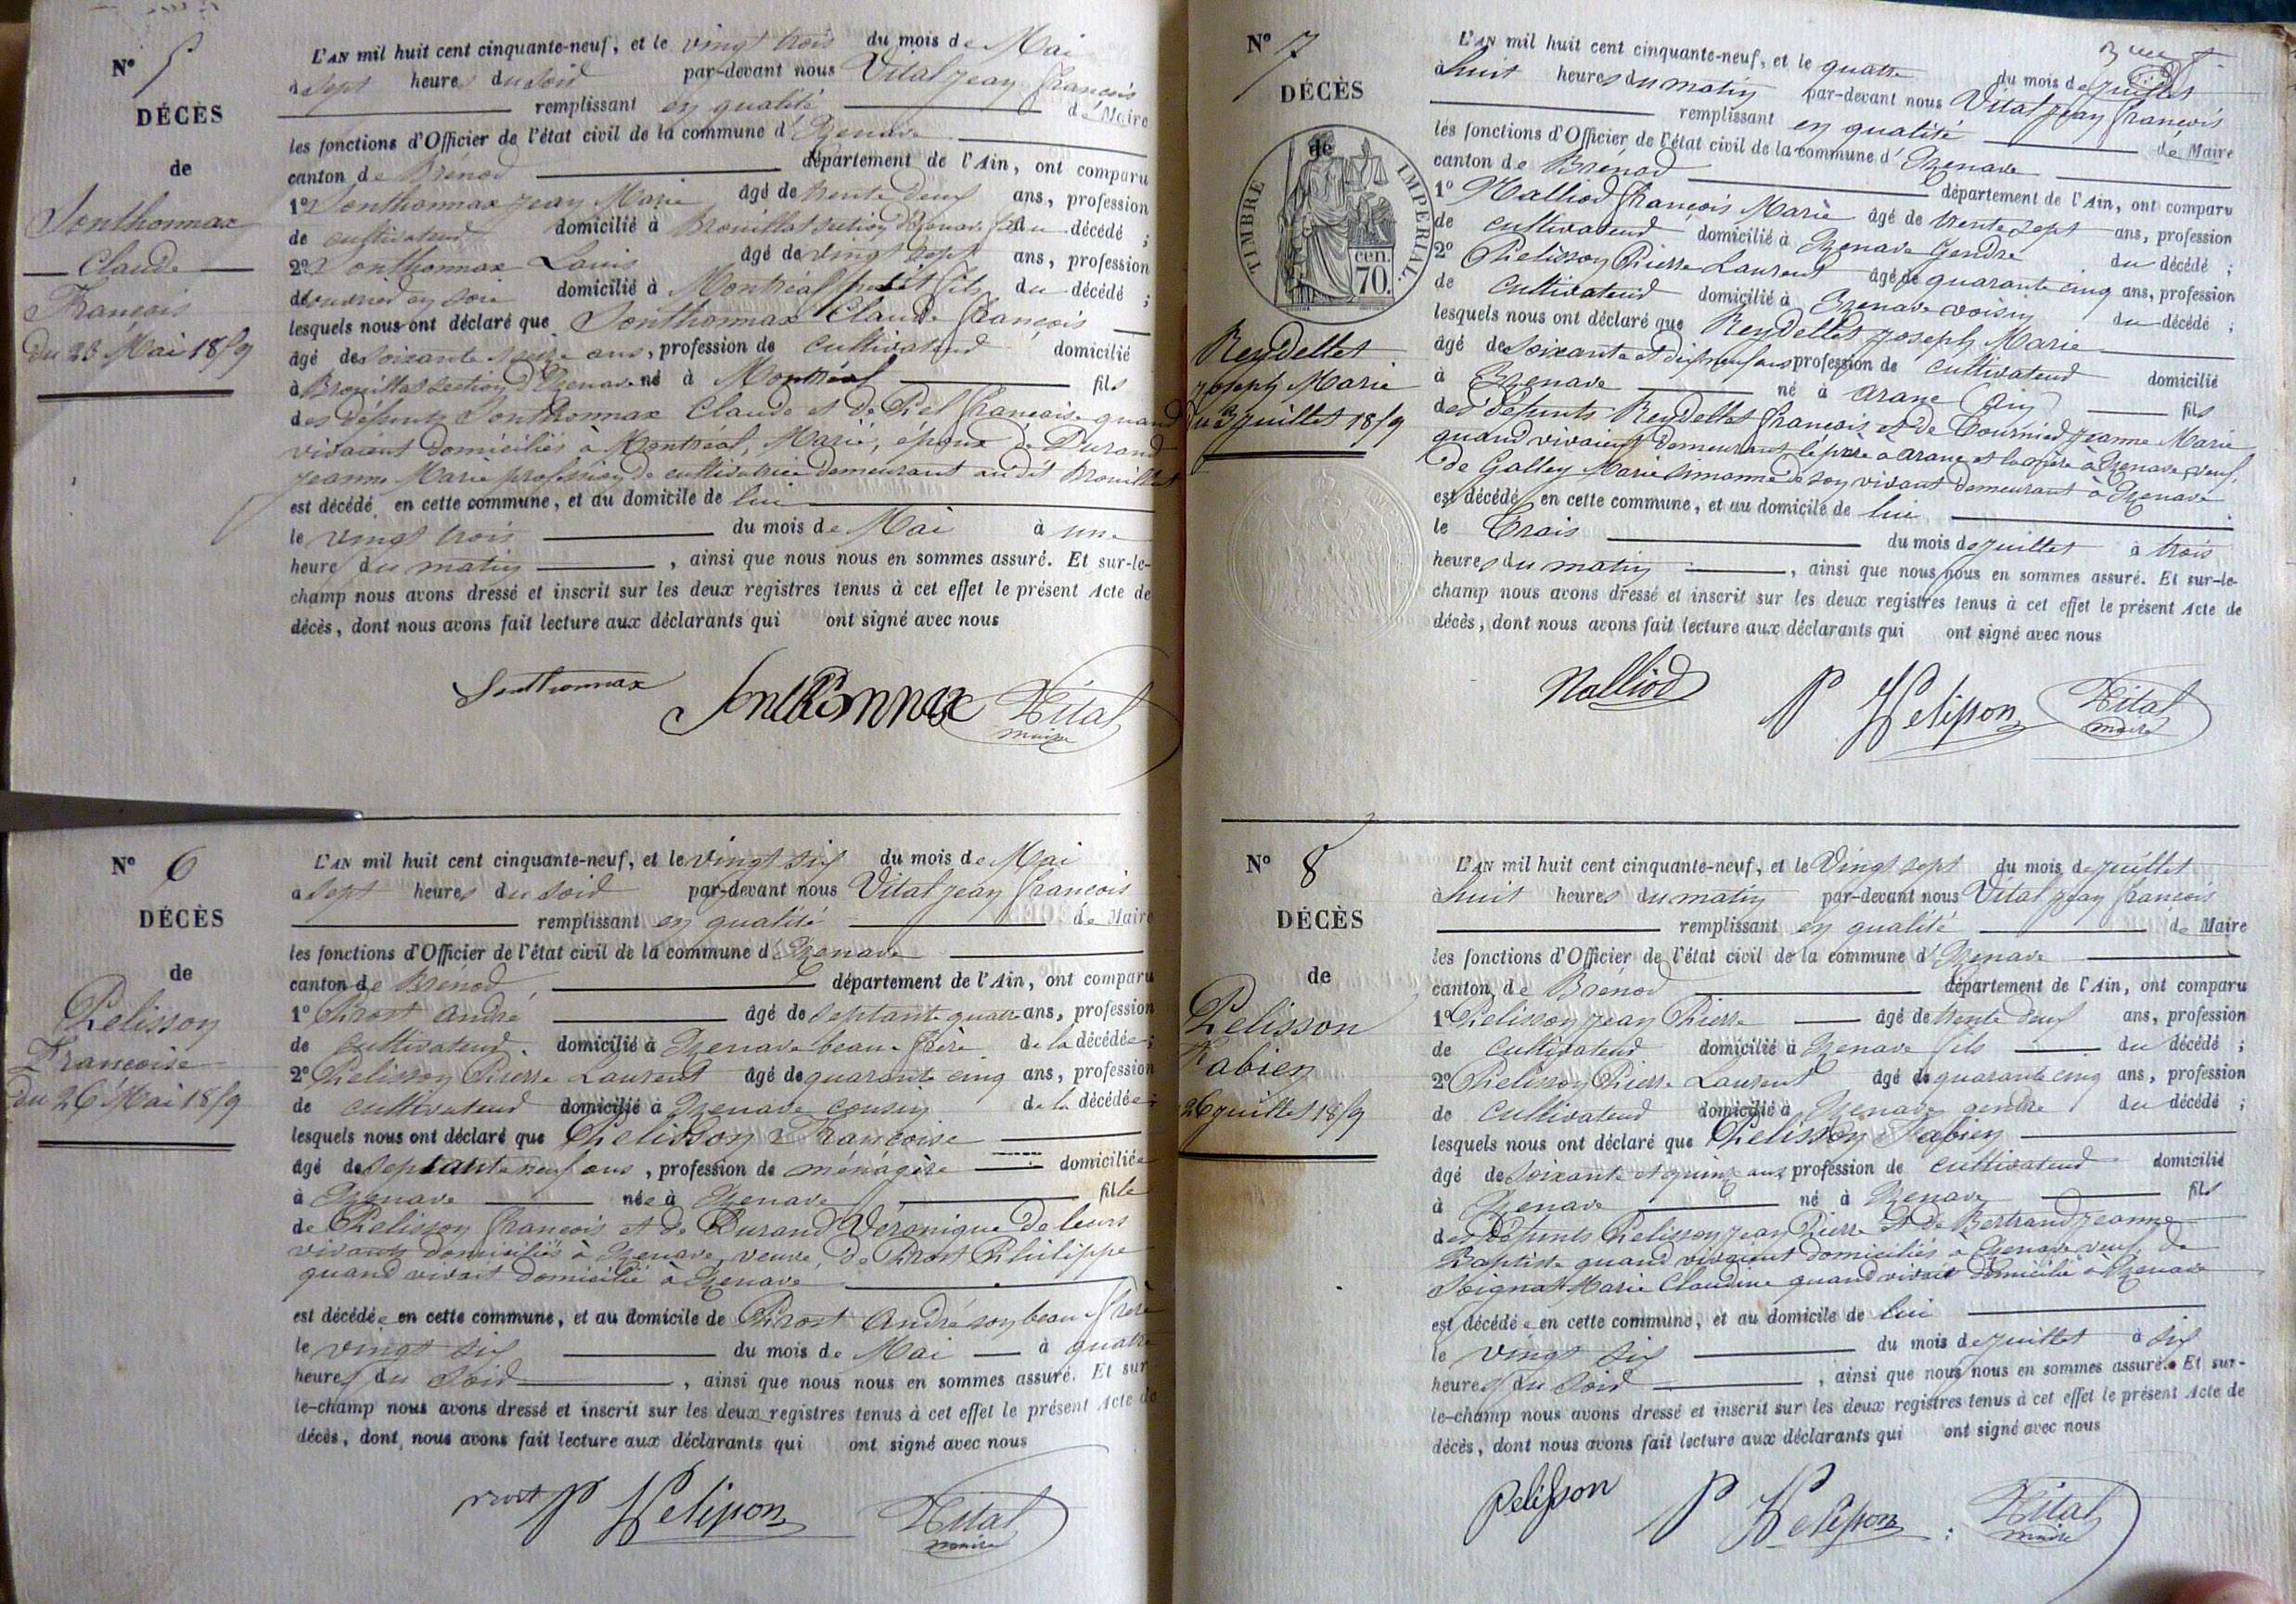 N° 5
DÉCÈS
de
Sonthonnax
Claude
François
du 23 Mai 1859
L'AN mil huit cent cinquante-neuf, et le vingt trois du mois de Mai
à sept heures du soir par-devant nous Vital Jean François
remplissant en qualité de Maire
les fonctions d'Officier de l'état civil de la commune d'Izenave
canton de Brénod département de l'Ain, ont comparu
1° Sonthonnax Jean Marie âgé de trente deux ans, profession
de cultivateur domicilié à Brouillat section d'Izenave fils du décédé ;
2° Sonthonnax Louis âgé de vingt sept ans, profession
d'ouvrier en soie domicilié à Montréal petit fils du décédé ;
lesquels nous ont déclaré que Sonthonnax Claude François
âgé de soixante ans, profession de cultivateur domicilié
à Brouillat section d'Izenave né à Montréal fils
des défunts Sonthonnax Claude et de Piel Françoise quand
vivaient domiciliés à Montréal, Marié, époux de Durand
Jeanne Marie profession de cultivatrice demeurant au dit Brouillat
est décédé en cette commune, et au domicile de lui
le vingt trois du mois de Mai à une
heure du matin, ainsi que nous nous en sommes assuré. Et sur-le-
champ nous avons dressé et inscrit sur les deux registres tenus à cet effet le présent Acte de
décès, dont nous avons fait lecture aux déclarants qui ont signé avec nous
Sonthonnax Sonthonnax Vital
maire
N° 6
DÉCÈS
de
Pelisson
Françoise
du 26 Mai 1859
L'AN mil huit cent cinquante-neuf, et le vingt six du mois de Mai
à sept heures du soir par-devant nous Vital Jean François
remplissant en qualité de Maire
les fonctions d'Officier de l'état civil de la commune d'Izenave
canton de Brénod, département de l'Ain, ont comparu
1° Prost André âgé de septante quatre ans, profession
de cultivateur domicilié à Izenave beau-frère de la décédée ;
2° Pelisson Pierre Laurent âgé de quarante cinq ans, profession
de cultivateur domicilié à Izenave cousin de la décédée ;
lesquels nous ont déclaré que Pelisson Françoise
âgé de septante neuf ans, profession de ménagère domiciliée
à Izenave née à Izenave fille
de Pelisson François et de Durand Véronique de leurs
vivants domiciliés à Izenave, veuve, de Prost Philippe
quand vivait domicilié à Izenave
est décédée en cette commune, et au domicile de Prost André son beau-frère
le vingt six du mois de Mai à quatre
heures du soir, ainsi que nous nous en sommes assuré. Et sur-
le-champ nous avons dressé et inscrit sur les deux registres tenus à cet effet le présent Acte de
décès, dont nous avons fait lecture aux déclarants qui ont signé avec nous
P Pelisson Vital
maire
N° 7
DÉCÈS
de
TIMBRE IMPERIAL
cen.
70.
Reydellet
Joseph Marie
du 3 juillet 1859
L'AN mil huit cent cinquante-neuf, et le quatre du mois de juillet
à huit heures du matin par-devant nous Vital Jean François
remplissant en qualité de Maire
les fonctions d'Officier de l'état civil de la commune d'Izenave
canton de Brénod département de l'Ain, ont comparu
1° Nalliod François Marie âgé de trente sept ans, profession
de cultivateur domicilié à Izenave Gendre du décédé ;
2° Pelisson Pierre Laurent âgé de quarante cinq ans, profession
de cultivateur domicilié à Izenave voisin du décédé ;
lesquels nous ont déclaré que Reydellet Joseph Marie
âgé de soixante et dix neuf ans profession de cultivateur domicilié
à Izenave né à Arane (Ain) fils
des défunts Reydellet François et de Tournier Jeanne Marie
quand vivaient demeurant le père à Arane et la mère à Izenave, veuf,
de Galley Marie de son vivant demeurant à Izenave
est décédé en cette commune, et au domicile de lui
le trois du mois de juillet à trois
heures du matin, ainsi que nous nous en sommes assuré. Et sur-le-
champ nous avons dressé et inscrit sur les deux registres tenus à cet effet le présent Acte de
décès, dont nous avons fait lecture aux déclarants qui ont signé avec nous
Nalliod P Pelisson Vital
maire
N° 8
DÉCÈS
de
Pelisson
Fabien
26 juillet 1859
L'AN mil huit cent cinquante-neuf, et le vingt sept du mois de juillet
à huit heures du matin par-devant nous Vital Jean François
remplissant en qualité de Maire
les fonctions d'Officier de l'état civil de la commune d'Izenave
canton de Brénod département de l'Ain, ont comparu
1° Pelisson Jean Pierre âgé de trente deux ans, profession
de cultivateur domicilié à Izenave fils du décédé ;
2° Pelisson Pierre Laurent âgé de quarante cinq ans, profession
de cultivateur domicilié à Izenave gendre du décédé ;
lesquels nous ont déclaré que Pelisson Fabien
âgé de soixante et quinze ans profession de cultivateur domicilié
à Izenave né à Izenave fils
des défunts Pelisson Jean Pierre et de Bertrand Jeanne
Baptiste quand vivaient domiciliés à Izenave veuf, de
Soignat Marie Claudine quand vivait domicilié à Izenave
est décédé en cette commune, et au domicile de lui
le vingt six du mois de juillet à six
heures du soir, ainsi que nous nous en sommes assuré. Et sur-
le-champ nous avons dressé et inscrit sur les deux registres tenus à cet effet le présent Acte de
décès, dont nous avons fait lecture aux déclarants qui ont signé avec nous
Pelisson P Pelisson Vital
maire